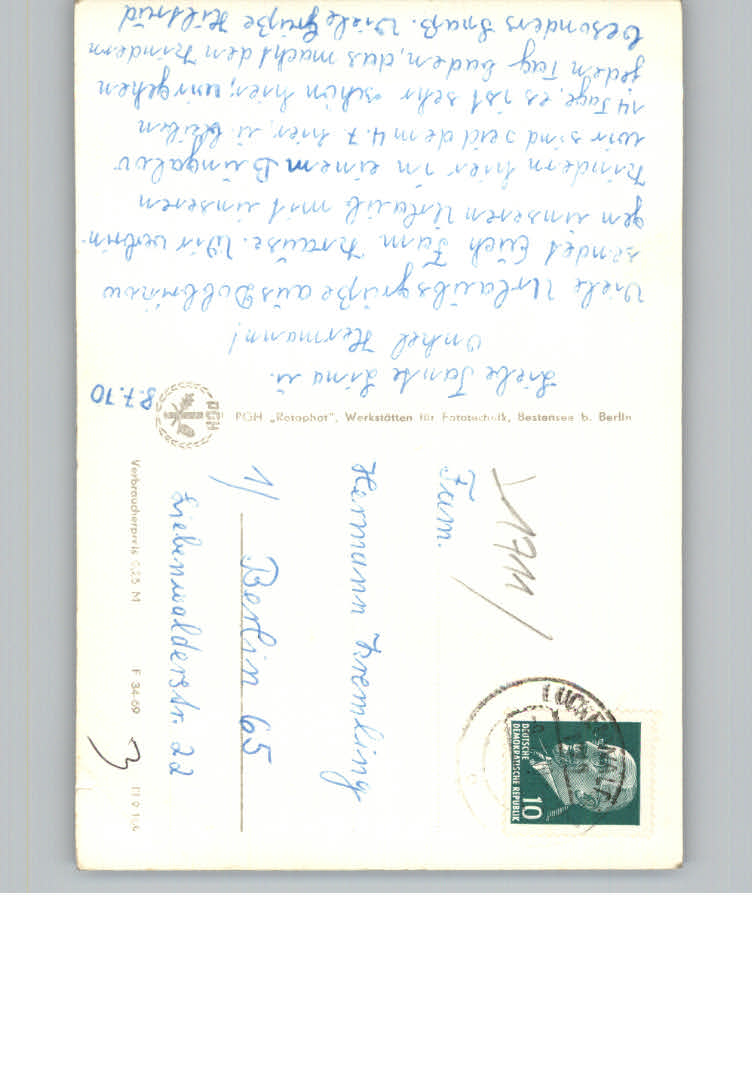 8.7.70
Liebe Tante Lina u.
Onkel Hermann!
Viele Urlaubsgrüße aus Dobbrikow
sendet Euch Fam. Krause. Wir verbrin-
gen unseren Urlaub mit unseren
Kindern hier in einem Bungalow
wir sind seid dem 4.7. hier, u. bleiben
14 Tage, es ist sehr schön hier, wir gehen
jeden Tag baden, das macht den Kindern
besonders Spaß. Viele Grüße Hiltrud
PGH
PGH „Rotophot“, Werkstätten für Fototechnik, Bestensee b. Berlin
X1711/
Fam.
Hermann Kremling
1/ Berlin 65
Liebenwalderstr. 22
Verbraucherpreis 0,25 M
F 34-69
3
DEUTSCHE
DEMOKRATISCHE REPUBLIK
10